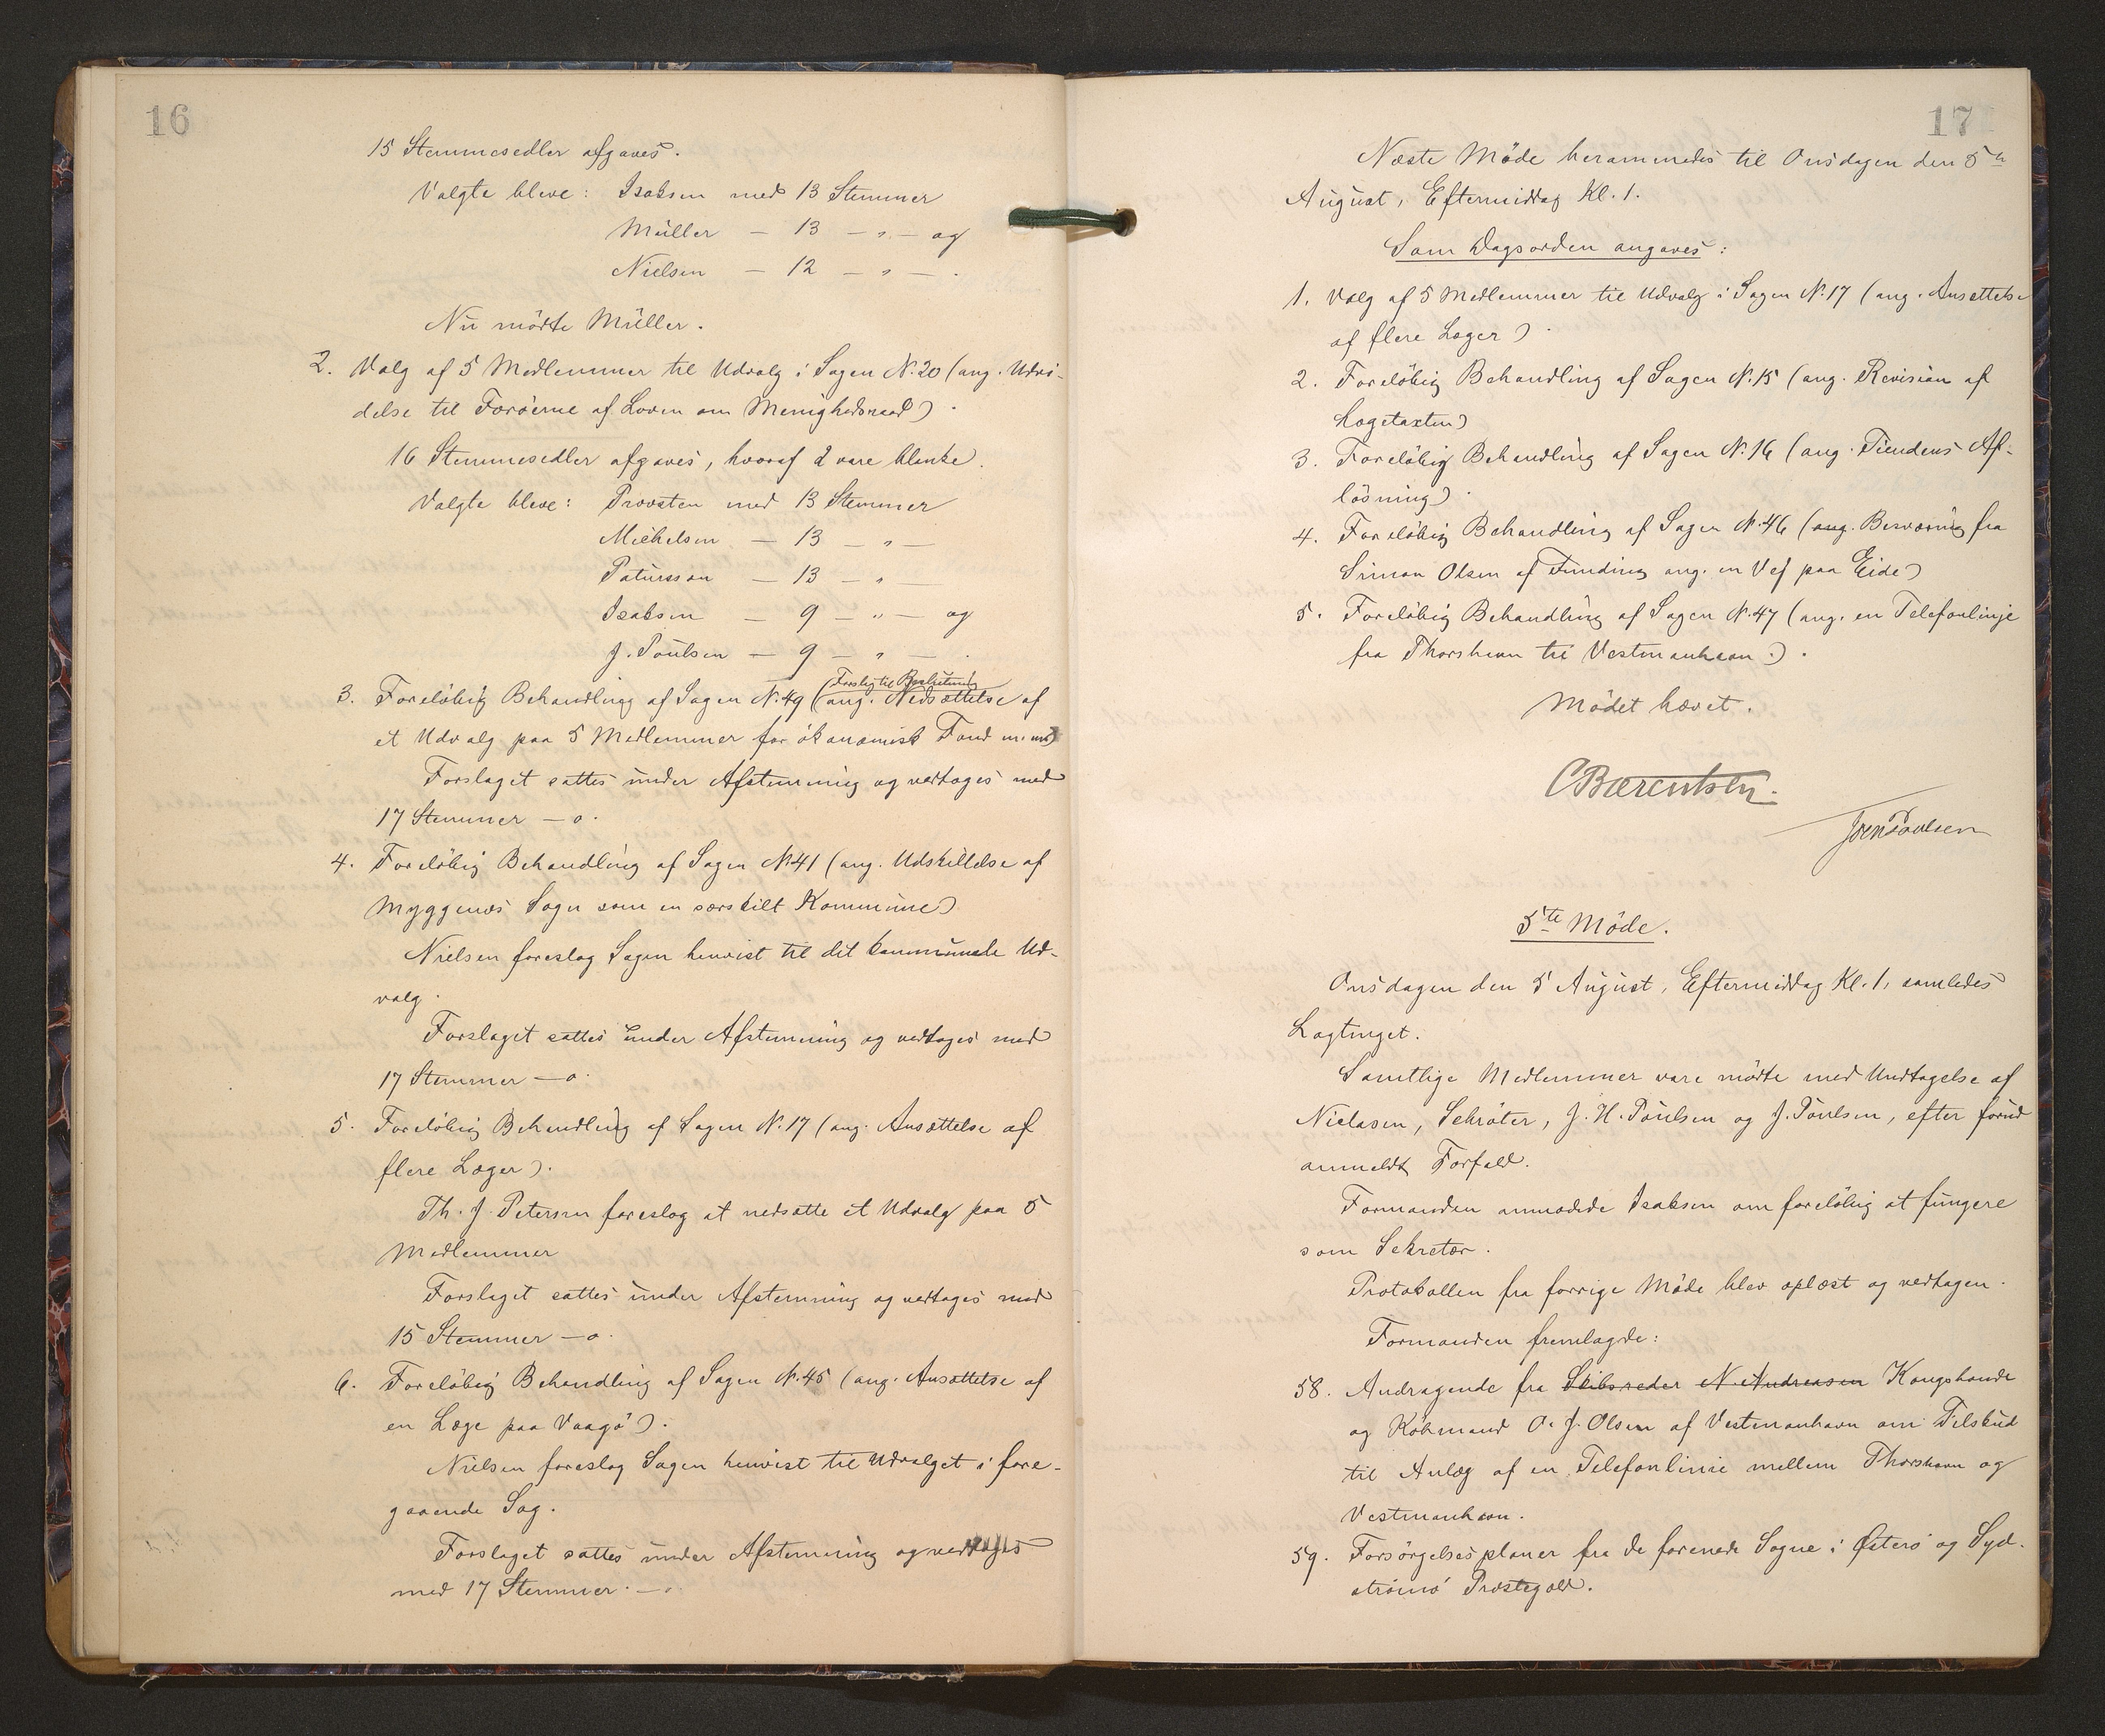 16
15 Stemmesedler afgaves.
Valgte bleve: Isaksen med 13 Stemmer
Müller — 13 — „ — og
Nielsen — 12 — „ — .
Nu mødte Müller.
2. Valg af 5 Medlemmer til Udvalg i Sagen N. 20 (ang. Udvi-
delse til Færøerne af Loven om Menighedsraad).
16 Stemmesedler afgaves, hvoraf 2 vare blanke.
Valgte bleve: Provsten med 13 Stemmer
Michelsen — 13 — „ —
Patursson — 13 — „
Isaksen — 9 — „ — og
J. Poulsen — 9 — „ — .
Forslag til Beslutning
3. Foreløbig Behandling af Sagen N. 49 (ang. Nedsættelse af
et Udvalg paa 5 Medlemmer for økonomisk Fond m.m.)
Forslaget sattes under Afstemning og vedtoges med
17 Stemmer — o.
4. Foreløbig Behandling af Sagen N. 41 (ang. Udskillelse af
Myggenæs Sogn som en særskilt Kommune)
Nielsen foreslog Sagen henvist til det kommunale Ud-
valg.
Forslaget sattes under Afstemning og vedtoges med
17 Stemmer — o.
5. Foreløbig Behandling af Sagen N. 17 (ang. Ansættelse af
flere Læger).
Th. J. Petersen foreslog at nedsætte et Udvalg paa 5
Medlemmer
Forslaget sattes under Afstemning og vedtoges med
15 Stemmer — o.
6. Foreløbig Behandling af Sagen N. 45 (ang. Ansættelse af
en Læge paa Vaagø).
Nielsen foreslog Sagen henvist til Udvalget i fore-
gaaende Sag.
Forslaget sattes under Afstemning og vedtoges
med 17 Stemmer. — o.
17
Næste Møde berammedes til Onsdagen den 5te
August, Eftermiddag Kl. 1.
Som Dagsorden angaves:
1. Valg af 5 Medlemmer til Udvalg i Sagen N. 17 (ang. Ansættelse
af flere Læger).
2. Foreløbig Behandling af Sagen N. 15 (ang. Revision af
Lægetaxten)
3. Foreløbig Behandling af Sagen N. 16 (ang. Tiendens Af-
løsning).
4. Foreløbig Behandling af Sagen N. 46 (ang. Besværing fra
Simon Olsen af Funding ang. en Vej paa Eide)
5. Foreløbig Behandling af Sagen N. 47 (ang. en Telefonlinje
fra Thorshavn til Vestmanhavn).
Mødet hævet.
CBærentsen.
Joen Poulsen
5te Møde.
Onsdagen den 5 August, Eftermiddag Kl. 1, samledes
Lagtinget.
Samtlige Medlemmer vare mødte med Undtagelse af
Niclasen, Schrøter, J. H. Poulsen og J. Poulsen, efter forud
anmeldt Forfald.
Formanden anmodede Isaksen om foreløbig at fungere
som Sekretær.
Protokollen fra forrige Møde blev oplæst og vedtagen.
Formanden fremlagde:
58. Andragende fra Skibsreder N. Andreasen Kongsbonde
og Købmand O. J. Olsen af Vestmanhavn om Tilskud
til Anlæg af en Telefonlinie mellem Thorshavn og
Vestmanhavn.
59. Forsørgelsesplaner fra de forenede Sogne i Østerø og Syd-
strømø Præstegæld.